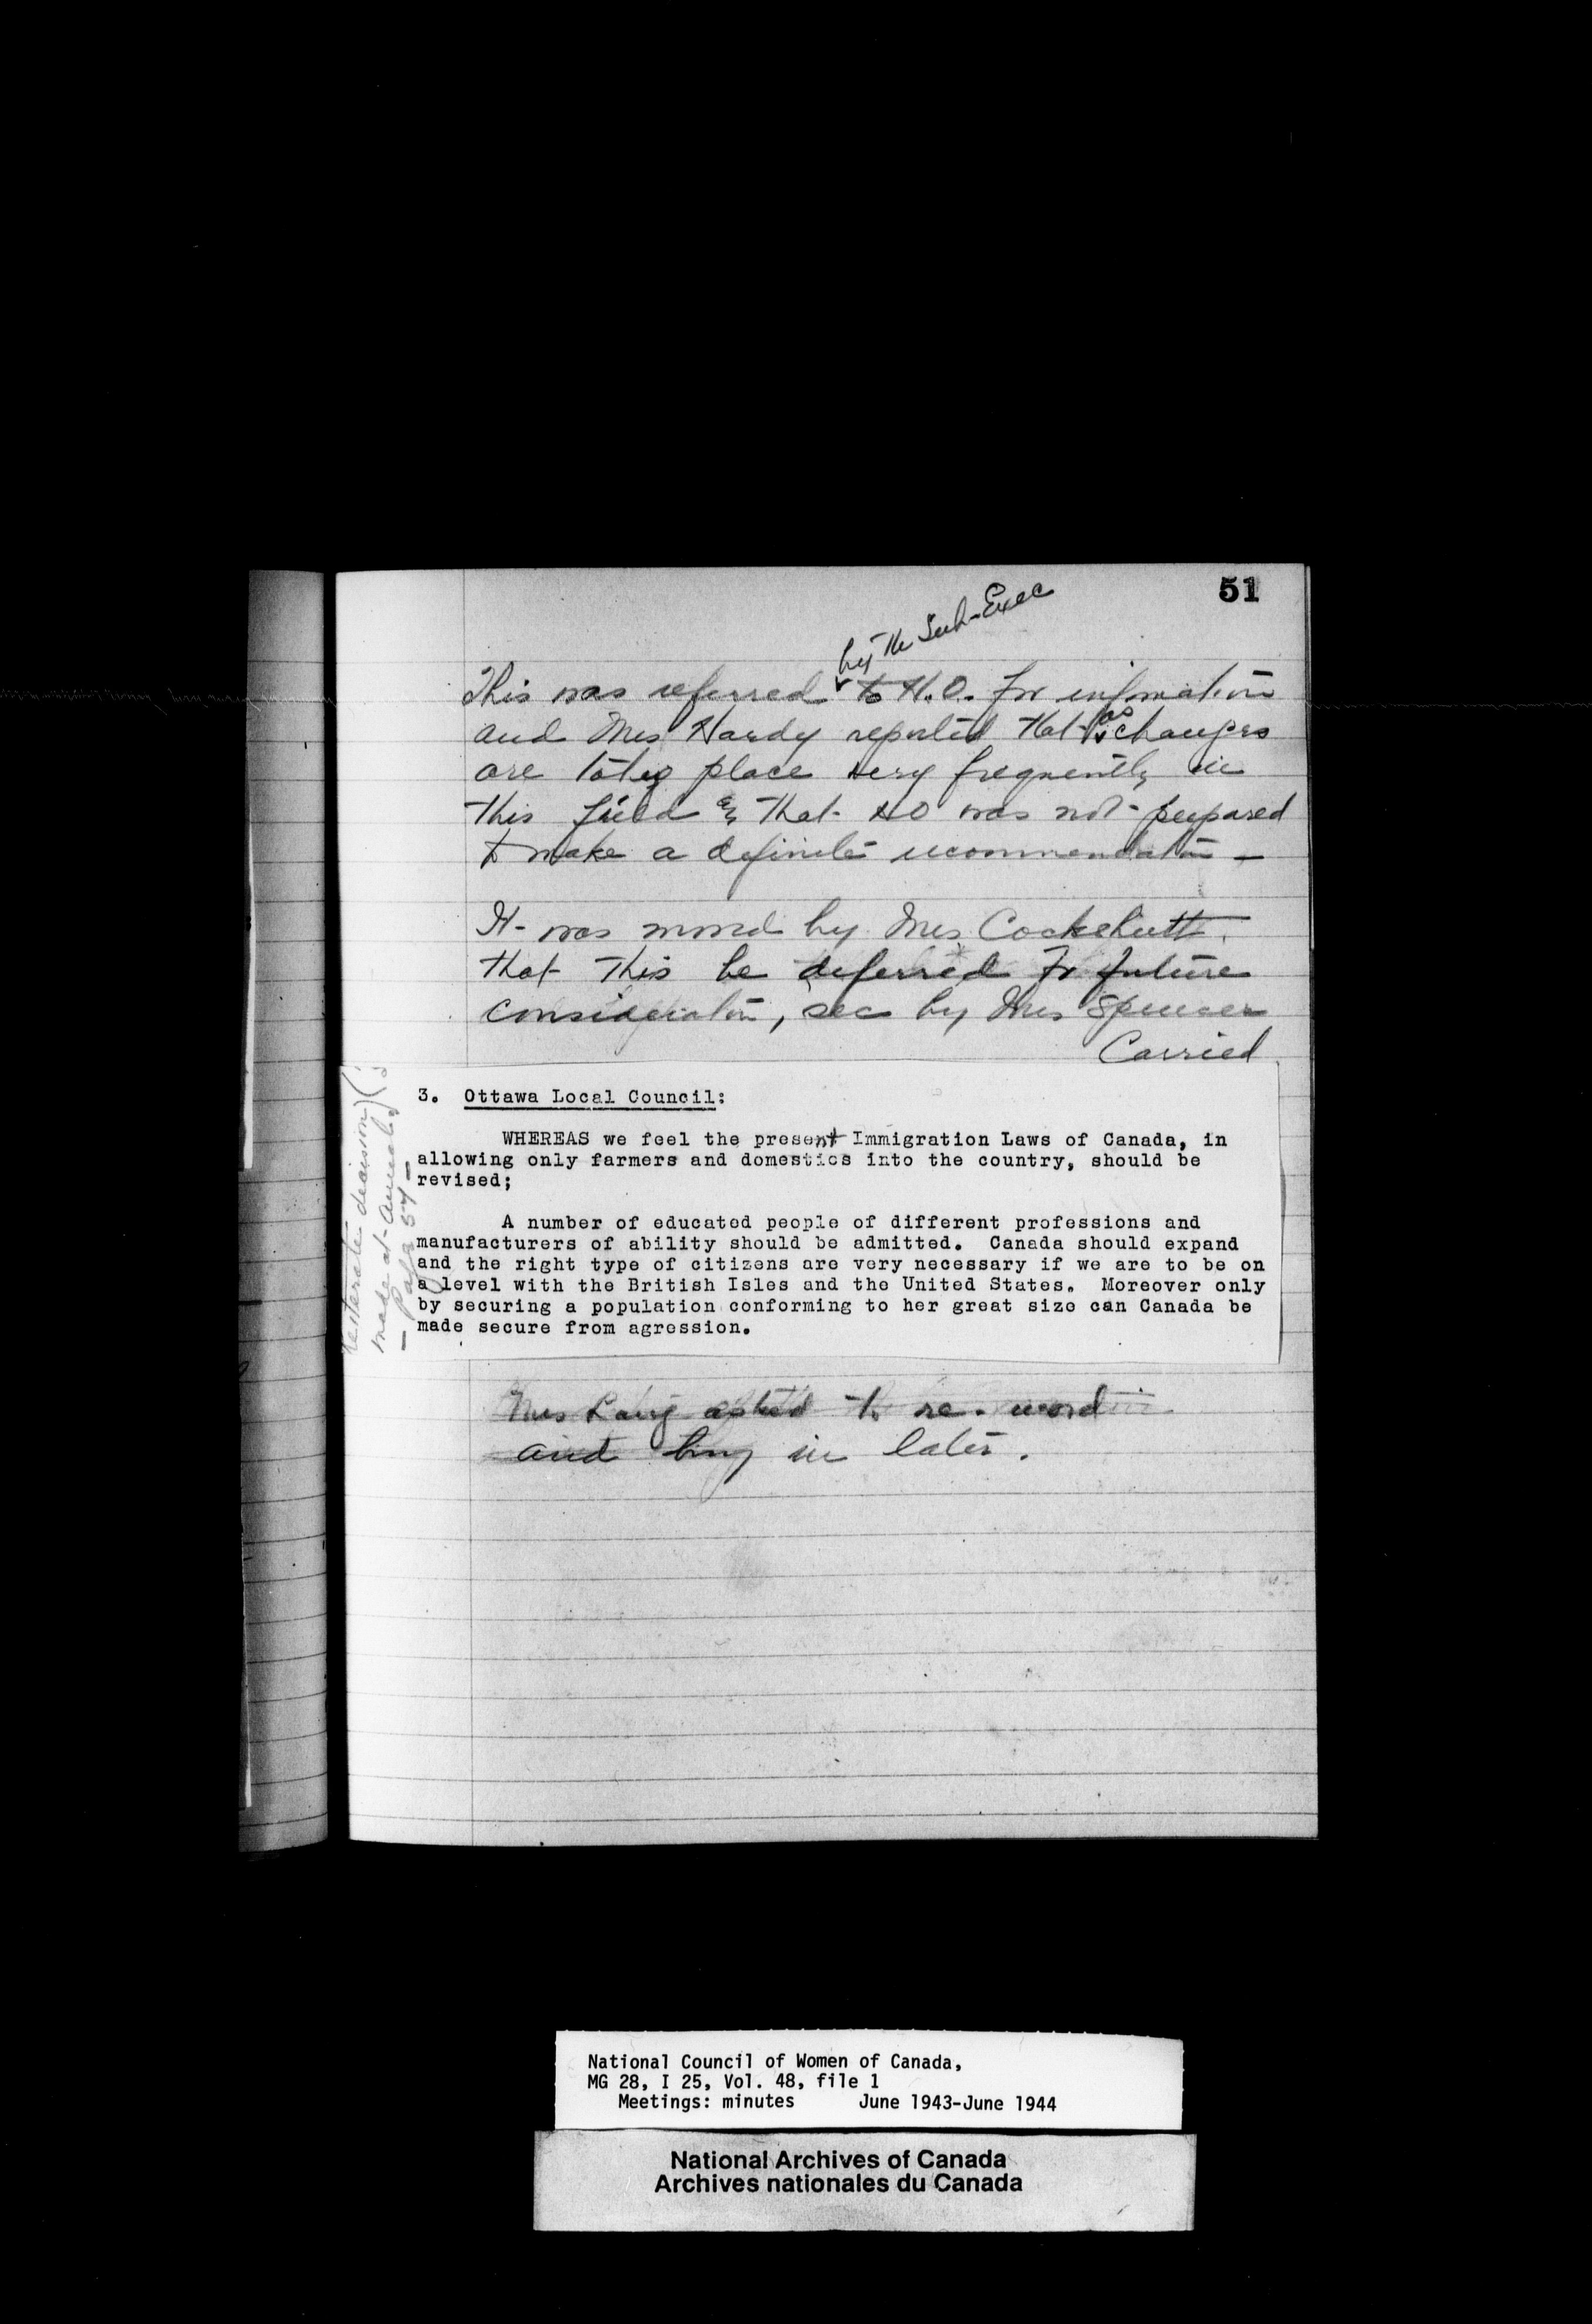 51
by the Sub-Exec
This was referred to H.O. for information
and Mrs Hardy reported that as changes
are place very frequently in
this field & that HO was not prepared
to make a definite recommendation —
It was moved by Mrs Cockshutt
that this be deferred for future
consideration, sec by Mrs Spencer
Carried
reiterate decision
made at Annual
— Page 57 —
3. Ottawa Local Council:
WHEREAS we feel the present Immigration Laws of Canada, in
allowing only farmers and domestics into the country, should be
revised;
A number of educated people of different professions and
manufacturers of ability should be admitted. Canada should expand
and the right type of citizens are very necessary if we are to be on
a level with the British Isles and the United States. Moreover only
by securing a population conforming to her great size can Canada be
made secure from agression.
Mrs Laing asked to re-word
and bring in later.
National Council of Women of Canada,
MG 28, I 25, Vol. 48, file 1
Meetings: minutes June 1943-June 1944
National Archives of Canada
Archives nationales du Canada